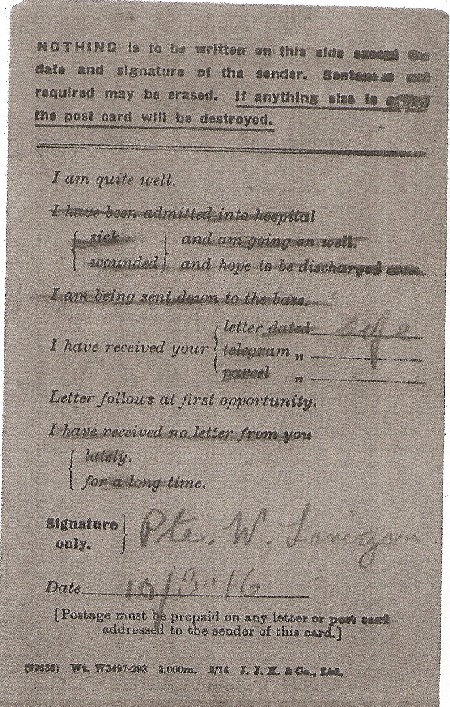 NOTHING is to be written on this side except the
date and signature of the sender. Sentences not
required may be erased. If anything else is added
the post card will be destroyed.
I am quite well.
I have been admitted into hospital
sick and am going on well.
wounded and hope to be discharged soon.
I am being sent down to the base.
letter dated
I have received your telegram „
parcel „
Letter follows at first opportunity.
I have received no letter from you
lately.
for a long time.
Signature only. Pte. W.
Date 10/3/16
[Postage must be prepaid on any letter or post card
addressed to the sender of this card.]
Wt. W3497-293 2,000m. 5/16 J. J. K. & Co., Ltd.